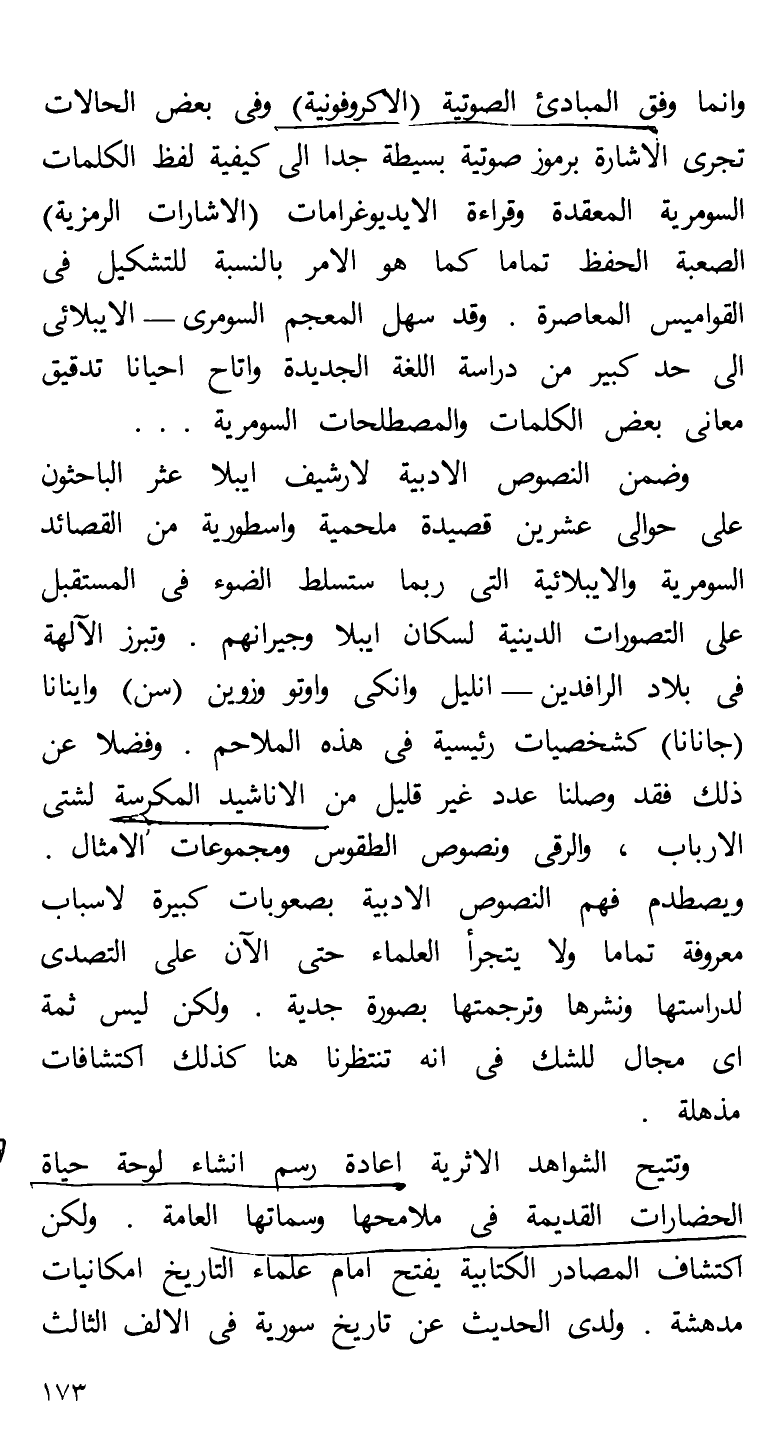 وانما وفق المبادئ الصوتية (الاكروفونية) وفى بعض الحالات
تجرى الاشارة برموز صوتية بسيطة جدا الى كيفية لفظ الكلمات
السومرية المعقدة وقراءة الايديوغرامات (الاشارات الرمزية)
الصعبة الحفظ تماما كما هو الامر بالنسبة للتشكيل فى
القواميس المعاصرة . وقد سهل المعجم السومرى — الايبلائى
الى حد كبير من دراسة اللغة الجديدة واتاح احيانا تدقيق
معانى بعض الكلمات والمصطلحات السومرية . . .
وضمن النصوص الادبية لارشيف ايبلا عثر الباحثون
على حوالى عشرين قصيدة ملحمية واسطورية من القصائد
السومرية والايبلائية التى ربما ستسلط الضوء فى المستقبل
على التصورات الدينية لسكان ايبلا وجيرانهم . وتبرز الآلهة
فى بلاد الرافدين — انليل وانكى واوتو وزوين (سن) واينانا
(جانانا) كشخصيات رئيسية فى هذه الملاحم . وفضلا عن
ذلك فقد وصلنا عدد غير قليل من الاناشيد المكرسة لشتى
الارباب ، والرقى ونصوص الطقوس ومجموعات الامثال .
ويصطدم فهم النصوص الادبية بصعوبات كبيرة لاسباب
معروفة تماما ولا يتجرأ العلماء حتى الآن على التصدى
لدراستها ونشرها وترجمتها بصورة جدية . ولكن ليس ثمة
اى مجال للشك فى انه تنتظرنا هنا كذلك اكتشافات
مذهلة .
وتتيح الشواهد الاثرية اعادة رسم انشاء لوحة حياة
الحضارات القديمة فى ملامحها وسماتها العامة . ولكن
اكتشاف المصادر الكتابية يفتح امام علماء التاريخ امكانيات
مدهشة . ولدى الحديث عن تاريخ سورية فى الالف الثالث
١٧٣